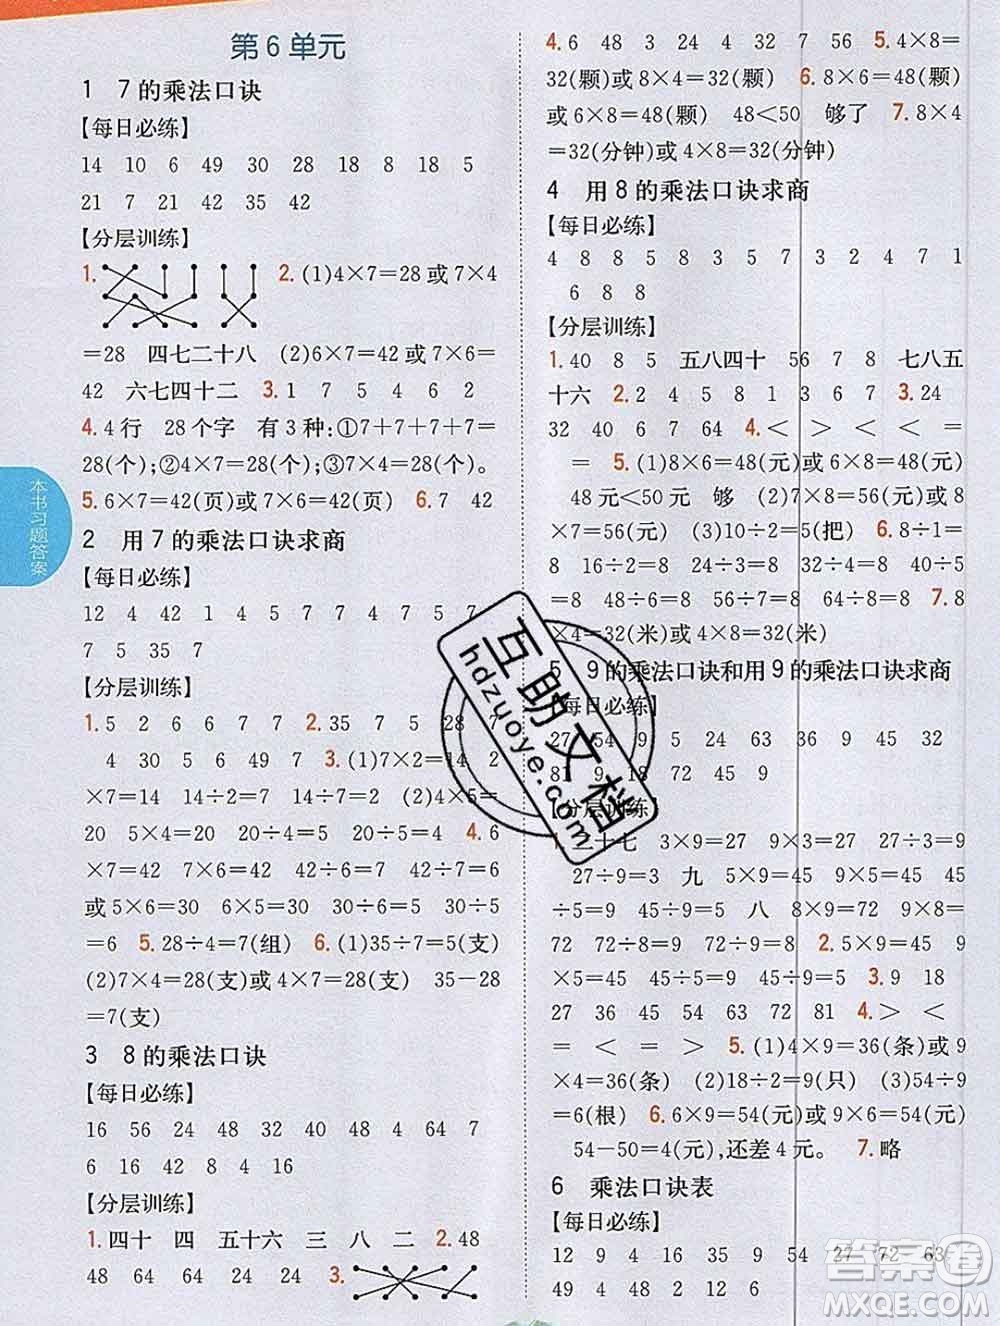 第6单元
1 7的乘法口诀
【每日必练】
14 10 6 49 30 28 18 8 18 5
21 7 21 42 35 42
【分层训练】
1. 2.(1)4×7=28或7×4
=28 四七二十八 (2)6×7=42或7×6=
42 六七四十二 3.1 7 5 4 6 2
4.4行 28个字 有3种:①7+7+7+7=
28(个);②4×7=28(个);③7×4=28(个)。
5.6×7=42(页)或7×6=42(页) 6.7 42
2 用7的乘法口诀求商
【每日必练】
12 4 42 1 4 5 7 7 4 7 5 7
7 5 35 7
【分层训练】
1.5 2 6 6 7 7 2.35 7 5 28 7
4 2 2 6 49 7 3.(1)7×2=14 2
×7=14 14÷2=7 14÷7=2 (2)4×5=
20 5×4=20 20÷4=5 20÷5=4 4.6
×7=42 7×6=42 42÷6=7 42÷7=6
或5×6=30 6×5=30 30÷6=5 30÷5
=6 5.28÷4=7(组) 6.(1)35÷7=5(支)
(2)7×4=28(支)或4×7=28(支) 35-28
=7(支)
3 8的乘法口诀
【每日必练】
16 56 24 48 32 40 48 4 64 7
6 16 42 8 4 16
【分层训练】
1.四十 四 五十六 三 八 二 2.48
48 64 64 24 24 3.
4.6 48 3 24 4 32 7 56 5.4×8=
32(颗)或8×4=32(颗) 6.8×6=48(颗)
或6×8=48(颗) 48<50 够了 7.8×4
=32(分钟)或4×8=32(分钟)
4 用8的乘法口诀求商
【每日必练】
4 8 8 5 8 8 3 5 7 3 2 4 7 1
6 8 8
【分层训练】
1.40 8 5 五八四十 56 7 8 七八五
十六 2.2 4 5 8 1 3 6 7 3.24
32 40 6 7 64 4.< > < < =
= 5.(1)8×6=48(元)或6×8=48(元)
48元<50元 够 (2)7×8=56(元)或8×7
=56(元) (3)10÷2=5(把) 6.8÷1=
8 16÷2=8 24÷3=8 32÷4=8 40÷5
=8 48÷6=8 56÷7=8 64÷8=8 7.8
×4=32(米)或4×8=32(米)
5 9的乘法口诀和用9的乘法口诀求商
【每日必练】
27 54 9 5 24 63 36 9 45 32
81 9 18 72 45 9
【分层训练】
1.二十七 3×9=27 9×3=27 27÷3=9
27÷9=3 九 5×9=45 9×5=45 45
÷5=9 45÷9=5 八 8×9=72 9×8=
72 72÷8=9 72÷9=8 2.5×9=45 9
×5=45 45÷5=9 45÷9=5 3.9 18
27 36 45 54 63 72 81 4.> <
= < = > 5.(1)4×9=36(条)或9
×4=36(条) (2)18÷2=9(只) (3)54÷9
=6(根) 6.6×9=54(元)或9×6=54(元)
54-50=4(元),还差4元。 7.略
6 乘法口诀表
【每日必练】
12 9 4 16 35 9 54 27 72 63
49 4 48 2 12 6
本书习题答案
互助文档
hdzuoye.com
答案圈
MXQE.COM